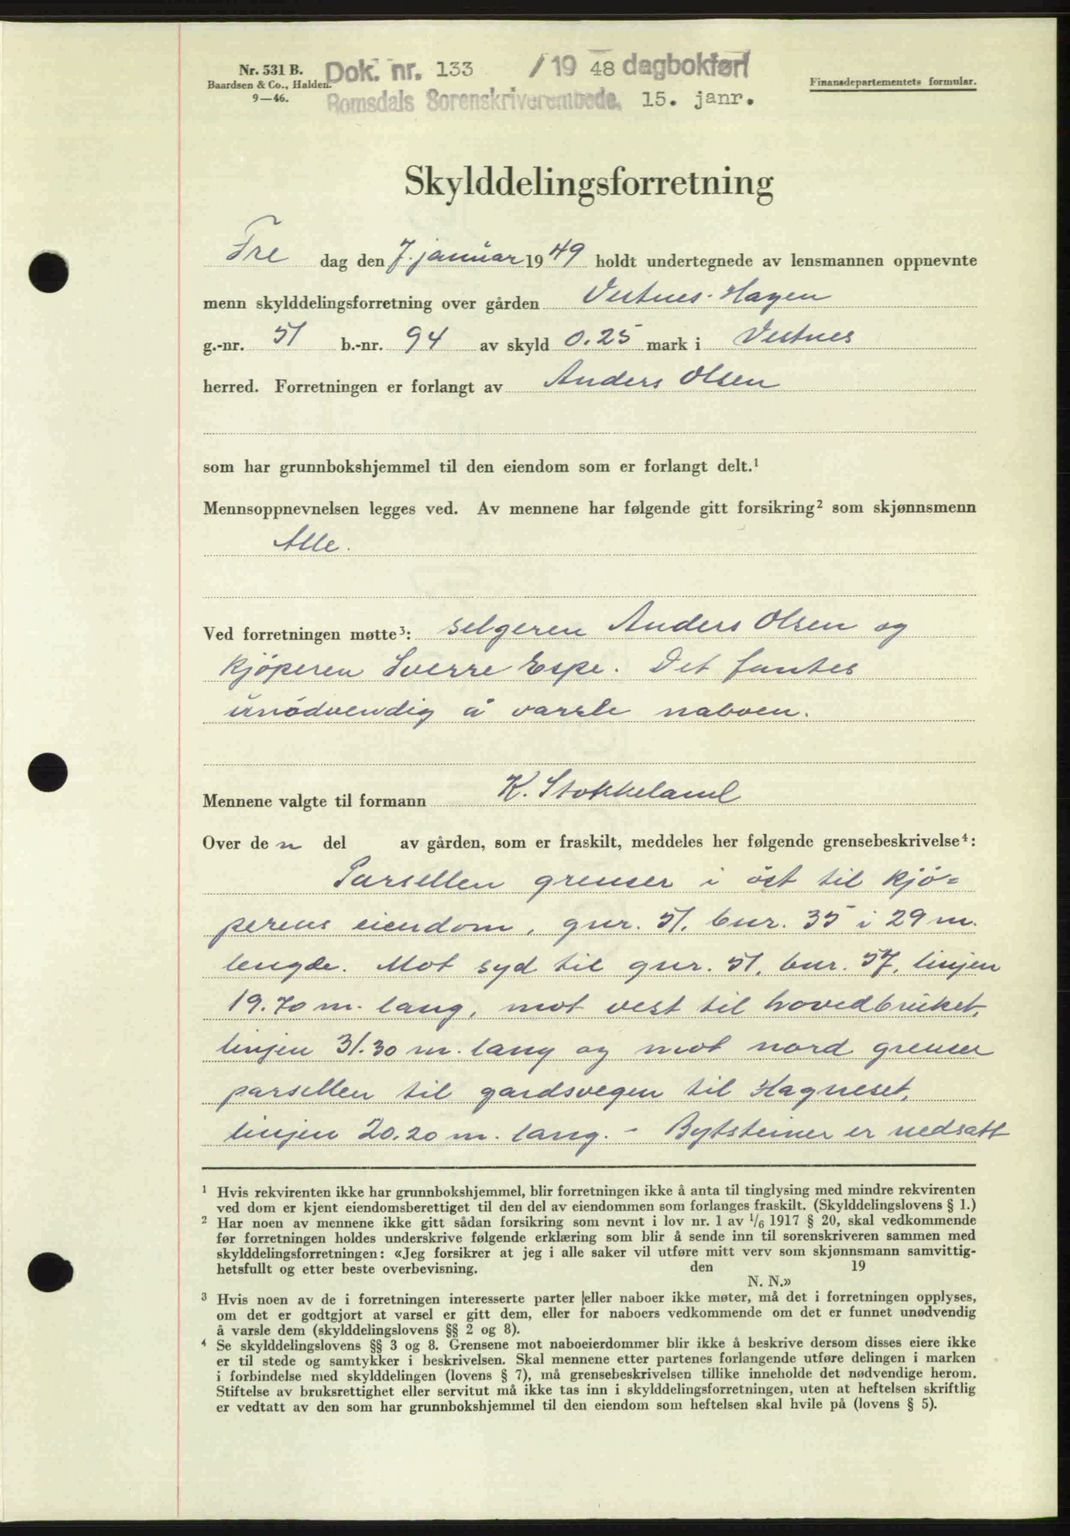 Nr. 531 B.
Baardsen & Co., Halden.
9—46.
Dok. nr. 133 /19 48 dagbokført
Romsdals Sorenskriverembede, 15. janr.
Finansdepartementets formular.
Skylddelingsforretning
Fre dag den 7. januar 1949 holdt undertegnede av lensmannen oppnevnte
menn skylddelingsforretning over gården Vestnes-Hagen
g.-nr. 51 b.-nr. 94 av skyld 0.25 mark i Vestnes
herred. Forretningen er forlangt av Anders Olsen
som har grunnbokshjemmel til den eiendom som er forlangt delt.¹
Mennsoppnevnelsen legges ved. Av mennene har følgende gitt forsikring² som skjønnsmenn
Alle.
Ved forretningen møtte³: selgeren Anders Olsen og
kjöperen Sverre Espe. Det fantes
unödvendig å varsle naboen.
Mennene valgte til formann K. Stokkeland
Over de n del av gården, som er fraskilt, meddeles her følgende grensebeskrivelse⁴:
Parsellen grenser i öst til kjö-
perens eiendom, gnr. 51. bnr. 35 i 29 m.
lengde. Mot syd til gnr. 51. bnr. 57, linjen
19.70 m. lang, mot vest til hovedbruket,
linjen 31.30 m. lang og mot nord grenser
parsellen til gardsvegen til Hagneset,
linjen 20.20 m. lang. - Bytsteiner er nedsatt
¹ Hvis rekvirenten ikke har grunnbokshjemmel, blir forretningen ikke å anta til tinglysing med mindre rekvirenten
ved dom er kjent eiendomsberettiget til den del av eiendommen som forlanges fraskilt. (Skylddelingslovens § 1.)
² Har noen av mennene ikke gitt sådan forsikring som nevnt i lov nr. 1 av 1/6 1917 § 20, skal vedkommende
før forretningen holdes underskrive følgende erklæring som blir å sende inn til sorenskriveren sammen med
skylddelingsforretningen: «Jeg forsikrer at jeg i alle saker vil utføre mitt verv som skjønnsmann samvittig-
hetsfullt og etter beste overbevisning. den 19
N. N.»
³ Hvis noen av de i forretningen interesserte parter eller naboer ikke møter, må det i forretningen opplyses,
om det er godtgjort at varsel er gitt dem, eller for naboers vedkommende om det er funnet unødvendig
å varsle dem (skylddelingslovens §§ 2 og 8).
⁴ Se skylddelingslovens §§ 3 og 8. Grensene mot naboeierdommer blir ikke å beskrive dersom disses eiere ikke
er til stede og samtykker i beskrivelsen. Skal mennene etter partenes forlangende utføre delingen i marken
i forbindelse med skylddelingen (lovens § 7), må grensebeskrivelsen tillike inneholde det nødvendige herom.
Stiftelse av bruksrettighet eller servitut må ikke tas inn i skylddelingsforretningen, uten at heftelsen skriftlig
er vedtatt av den som har grunnbokshjemmel til den eiendom som heftelsen skal hvile på (lovens § 5).